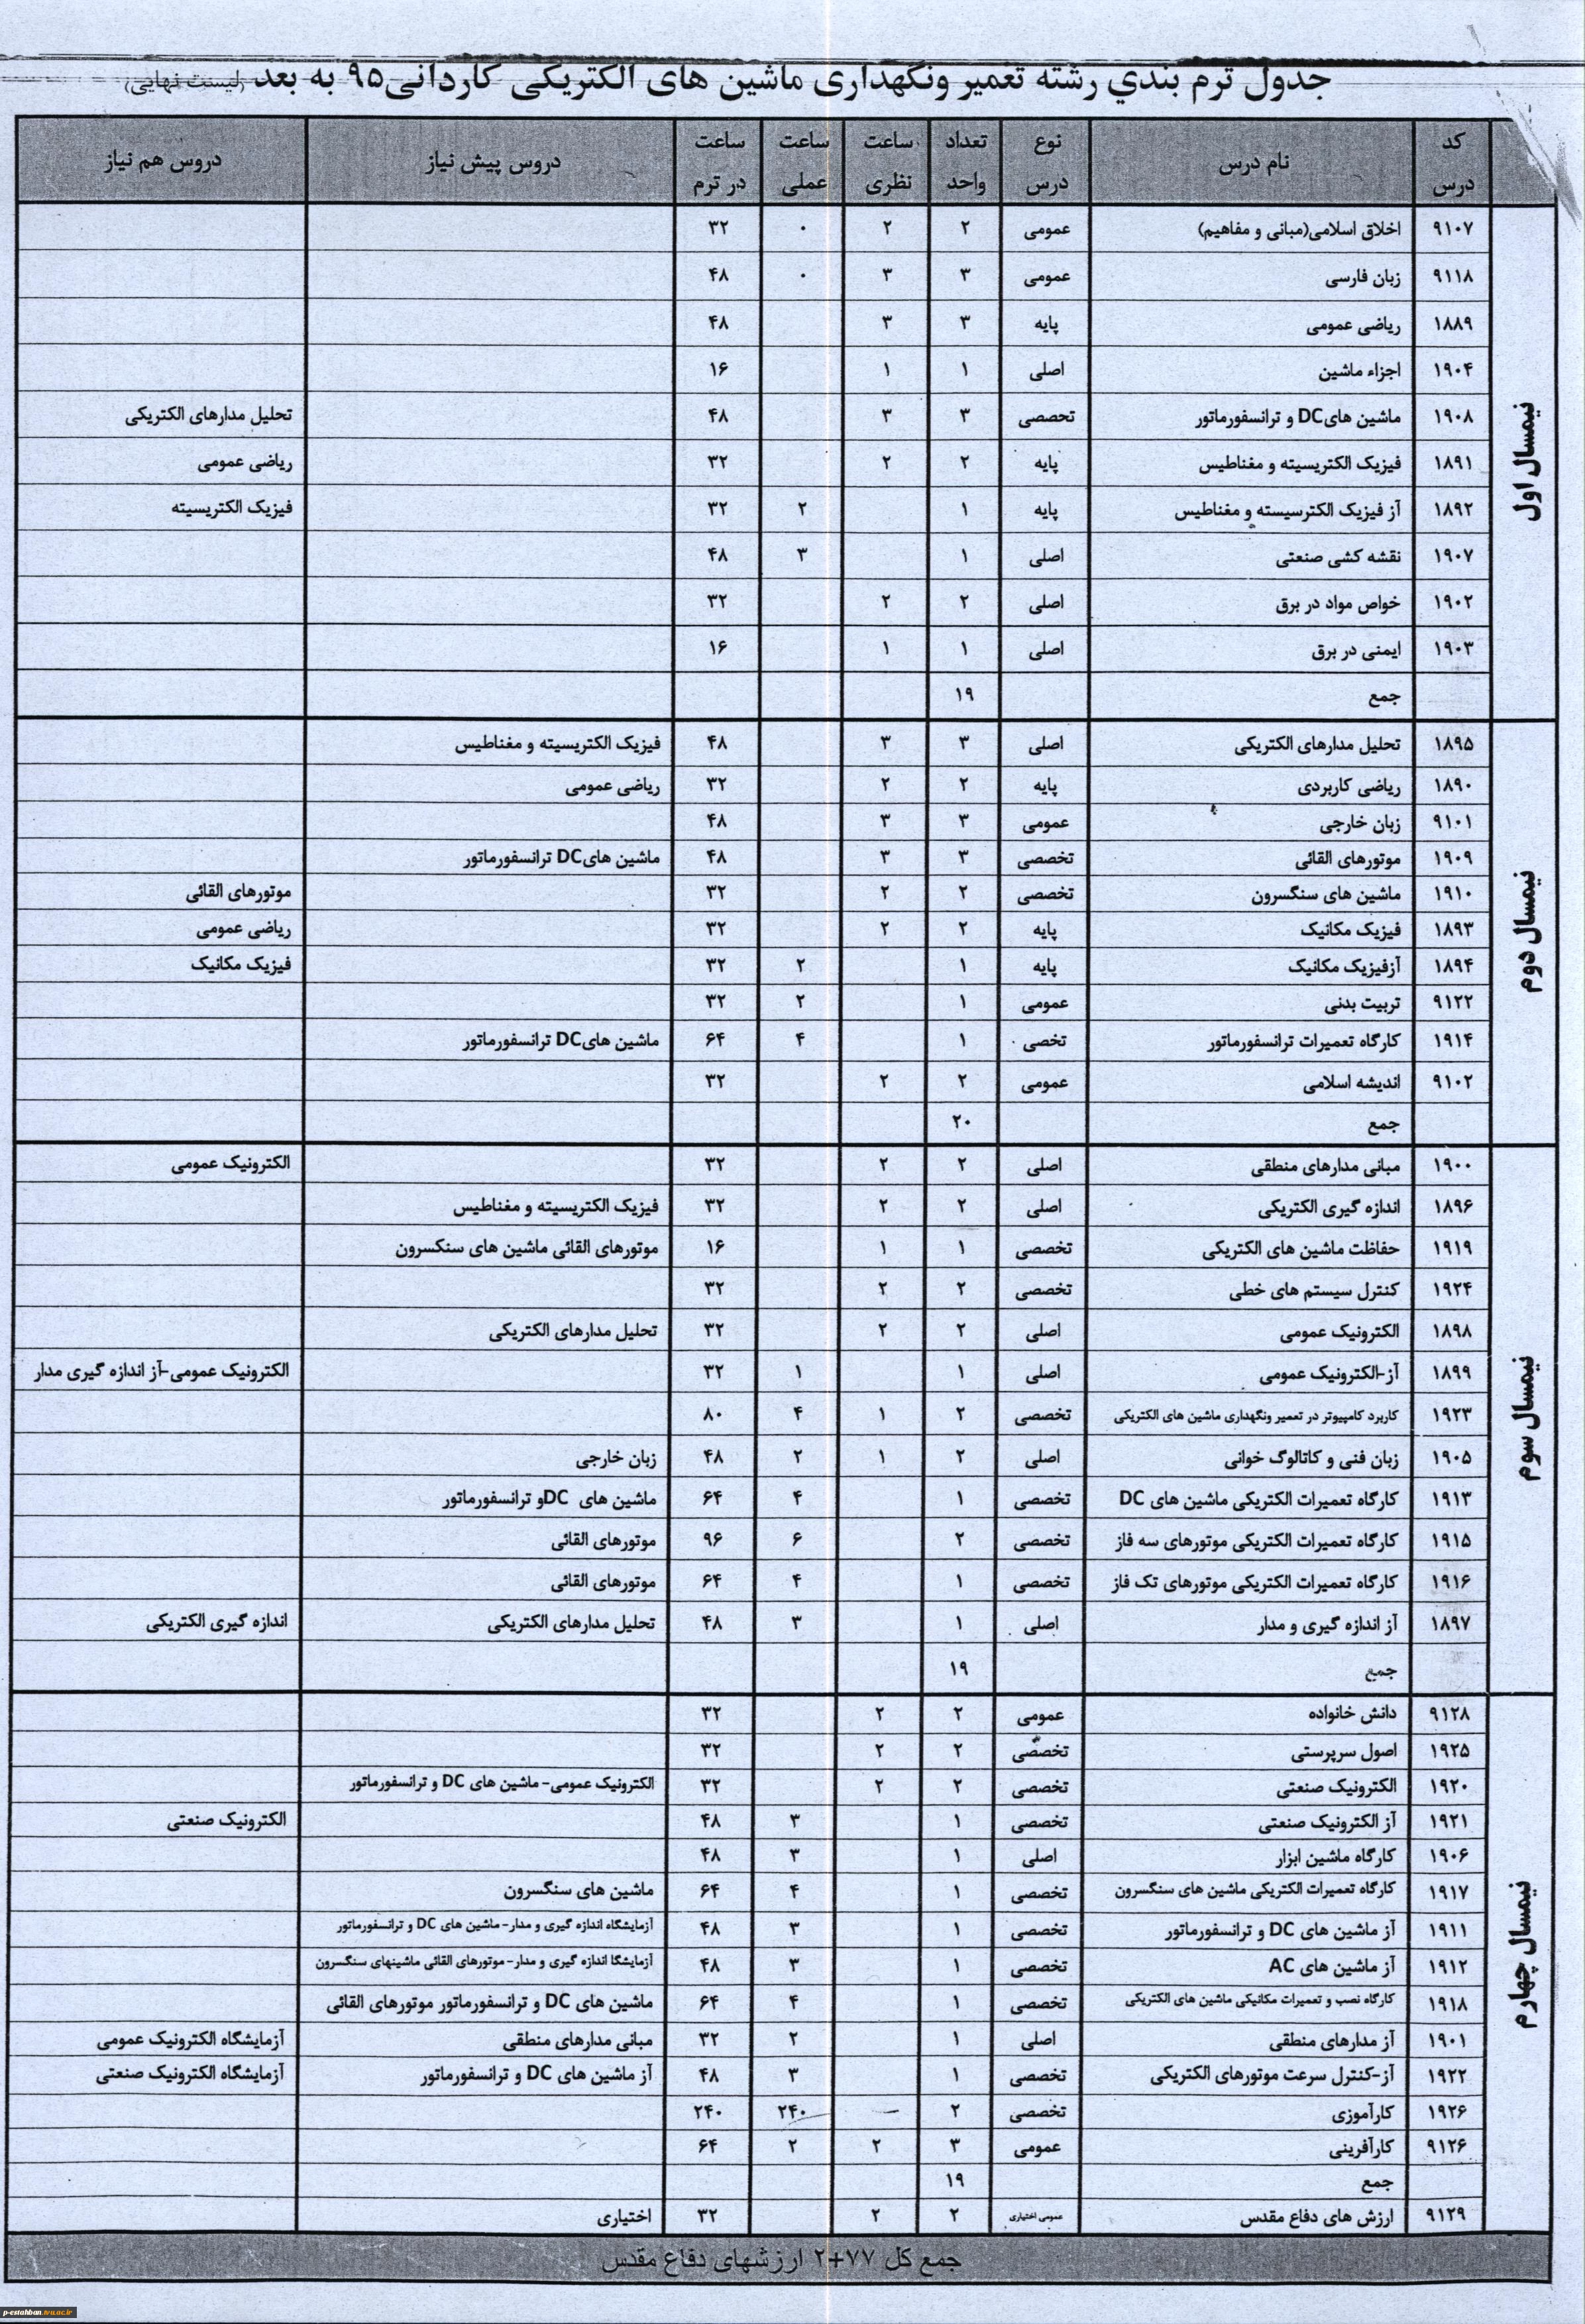 جدول ترم بندي رشته تعمیر ونگهداری ماشین های الکتریکی کاردانی۹۵ به بعد (لیست نهایی)
کد درس نام درس نوع درس تعداد واحد ساعت نظری ساعت عملی ساعت در ترم دروس پیش نیاز دروس هم نیاز
نیمسال اول
۹۱۰۷ اخلاق اسلامی(مبانی و مفاهیم) عمومی ۲ ۲ ۰ ۳۲
۹۱۱۸ زبان فارسی عمومی ۳ ۳ ۰ ۴۸
۱۸۸۹ ریاضی عمومی پایه ۳ ۳ ۴۸
۱۹۰۴ اجزاء ماشین اصلی ۱ ۱ ۱۶
۱۹۰۸ ماشین هایDC و ترانسفورماتور تحصصی ۳ ۳ ۴۸ تحلیل مدارهای الکتریکی
۱۸۹۱ فیزیک الکتریسیته و مغناطیس پایه ۲ ۲ ۳۲ ریاضی عمومی
۱۸۹۲ آز فیزیک الکترسیسته و مغناطیس پایه ۱ ۲ ۳۲ فیزیک الکتریسیته
۱۹۰۷ نقشه کشی صنعتی اصلی ۱ ۳ ۴۸
۱۹۰۲ خواص مواد در برق اصلی ۲ ۲ ۳۲
۱۹۰۳ ایمنی در برق اصلی ۱ ۱ ۱۶
جمع ۱۹
نیمسال دوم
۱۸۹۵ تحلیل مدارهای الکتریکی اصلی ۳ ۳ ۴۸ فیزیک الکتریسیته و مغناطیس
۱۸۹۰ ریاضی کاربردی پایه ۲ ۲ ۳۲ ریاضی عمومی
۹۱۰۱ زبان خارجی عمومی ۳ ۳ ۴۸
۱۹۰۹ موتورهای القائی تخصصی ۳ ۳ ۴۸ ماشین هایDC ترانسفورماتور
۱۹۱۰ ماشین های سنگسرون تخصصی ۲ ۲ ۳۲ موتورهای القائی
۱۸۹۳ فیزیک مکانیک پایه ۲ ۲ ۳۲ ریاضی عمومی
۱۸۹۴ آزفیزیک مکانیک پایه ۱ ۲ ۳۲ فیزیک مکانیک
۹۱۲۲ تربیت بدنی عمومی ۱ ۲ ۳۲
۱۹۱۴ کارگاه تعمیرات ترانسفورماتور تخصی ۱ ۴ ۶۴ ماشین هایDC ترانسفورماتور
۹۱۰۲ اندیشه اسلامی عمومی ۲ ۲ ۳۲
جمع ۲۰
نیمسال سوم
۱۹۰۰ مبانی مدارهای منطقی اصلی ۲ ۲ ۳۲ الکترونیک عمومی
۱۸۹۶ اندازه گیری الکتریکی اصلی ۲ ۲ ۳۲ فیزیک الکتریسیته و مغناطیس
۱۹۱۹ حفاظت ماشین های الکتریکی تخصصی ۱ ۱ ۱۶ موتورهای القائی ماشین های سنکسرون
۱۹۲۴ کنترل سیستم های خطی تخصصی ۲ ۲ ۳۲
۱۸۹۸ الکترونیک عمومی اصلی ۲ ۲ ۳۲ تحلیل مدارهای الکتریکی
۱۸۹۹ آز-الکترونیک عمومی اصلی ۱ ۱ ۳۲ الکترونیک عمومی-آز اندازه گیری مدار
۱۹۲۳ کاربرد کامپیوتر در تعمیر ونگهداری ماشین های الکتریکی تخصصی ۲ ۱ ۴ ۸۰
۱۹۰۵ زبان فنی و کاتالوگ خوانی اصلی ۲ ۱ ۲ ۴۸ زبان خارجی
۱۹۱۳ کارگاه تعمیرات الکتریکی ماشین های DC تخصصی ۱ ۴ ۶۴ ماشین های DCو ترانسفورماتور
۱۹۱۵ کارگاه تعمیرات الکتریکی موتورهای سه فاز تخصصی ۲ ۶ ۹۶ موتورهای القائی
۱۹۱۶ کارگاه تعمیرات الکتریکی موتورهای تک فاز تخصصی ۱ ۴ ۶۴ موتورهای القائی
۱۸۹۷ آز اندازه گیری و مدار اصلی ۱ ۳ ۴۸ تحلیل مدارهای الکتریکی اندازه گیری الکتریکی
جمع ۱۹
نیمسال چهارم
۹۱۲۸ دانش خانواده عمومی ۲ ۲ ۳۲
۱۹۲۵ اصول سرپرستی تخصصی ۲ ۲ ۳۲
۱۹۲۰ الکترونیک صنعتی تخصصی ۲ ۲ ۳۲ الکترونیک عمومی- ماشین های DC و ترانسفورماتور
۱۹۲۱ آز الکترونیک صنعتی تخصصی ۱ ۳ ۴۸ الکترونیک صنعتی
۱۹۰۶ کارگاه ماشین ابزار اصلی ۱ ۳ ۴۸
۱۹۱۷ کارگاه تعمیرات الکتریکی ماشین های سنگسرون تخصصی ۱ ۴ ۶۴ ماشین های سنگسرون
۱۹۱۱ آز ماشین های DC و ترانسفورماتور تخصصی ۱ ۳ ۴۸ آزمایشگاه اندازه گیری و مدار- ماشین های DC و ترانسفورماتور
۱۹۱۲ آز ماشین های AC تخصصی ۱ ۳ ۴۸ آزمایشگا اندازه گیری و مدار- موتورهای القائی ماشینهای سنگسرون
۱۹۱۸ کارگاه نصب و تعمیرات مکانیکی ماشین های الکتریکی تخصصی ۱ ۴ ۶۴ ماشین های DC و ترانسفورماتور موتورهای القائی
۱۹۰۱ آز مدارهای منطقی اصلی ۱ ۲ ۳۲ مبانی مدارهای منطقی آزمایشگاه الکترونیک عمومی
۱۹۲۲ آز-کنترل سرعت موتورهای الکتریکی تخصصی ۱ ۳ ۴۸ آز ماشین های DC و ترانسفورماتور آزمایشگاه الکترونیک صنعتی
۱۹۲۶ کارآموزی تخصصی ۲ — ۲۴۰ ۲۴۰
۹۱۲۶ کارآفرینی عمومی ۳ ۲ ۲ ۶۴
جمع ۱۹
۹۱۲۹ ارزش های دفاع مقدس عمومی اختیاری ۲ ۲ ۳۲ اختیاری
جمع کل ۷۷+۲ ارزشهای دفاع مقدس
p-estahban.tvu.ac.ir